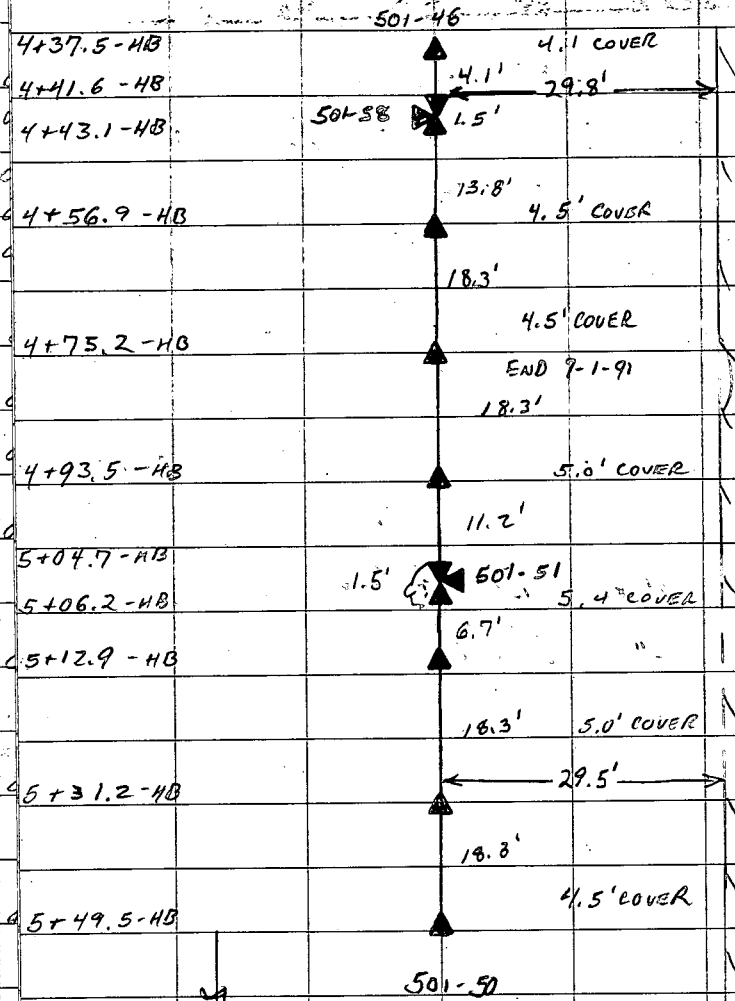 501-46
4+37.5-HB
4.1 COVER
4+41.6-HB
4.1'
29.8'
501-58
4+43.1-HB
1.5'
13.8'
4+56.9-HB
4.5' COVER
18.3'
4.5' COVER
4+75.2-HB
END 9-1-91
18.3'
4+93.5-HB
5.0' COVER
11.2'
5+04.7-HB
1.5'
501-51
5+06.2-HB
5.4' COVER
6.7'
5+12.9-HB
18.3'
5.0' COVER
29.5'
5+31.2-HB
18.3'
4.5' COVER
5+49.5-HB
501-50